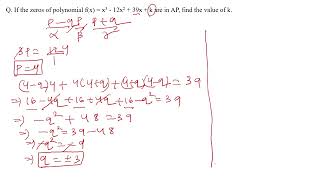 Q. If the zeros of polynomial f(x) = x³ - 12x² + 39x + k are in AP, find the value of k.
p-q, p, p+q
α β γ
3p = 12
p = 4
(4-q)4 + 4(4+q) + (4+q)(4-q) = 39
⇒ 16 - 4q + 16 + 4q + 16 - q² = 39
⇒ -q² + 48 = 39
⇒ -q² = 39 - 48
⇒ -q² = -9
⇒ q = ±3